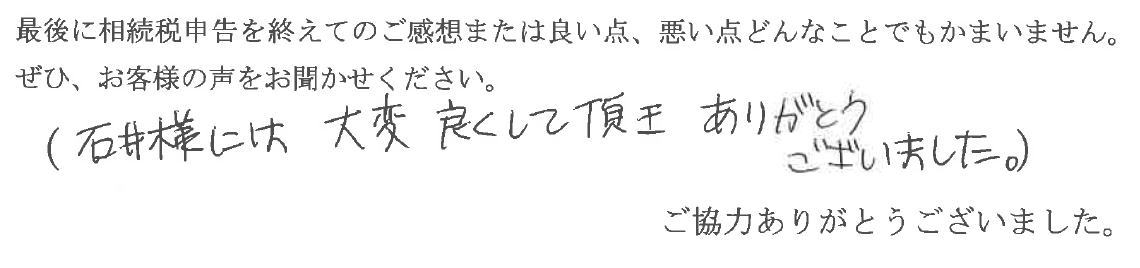 最後に相続税申告を終えてのご感想または良い点、悪い点どんなことでもかまいません。
ぜひ、お客様の声をお聞かせください。
(石井様には 大変 良くして頂き ありがとう
ございました。)
ご協力ありがとうございました。